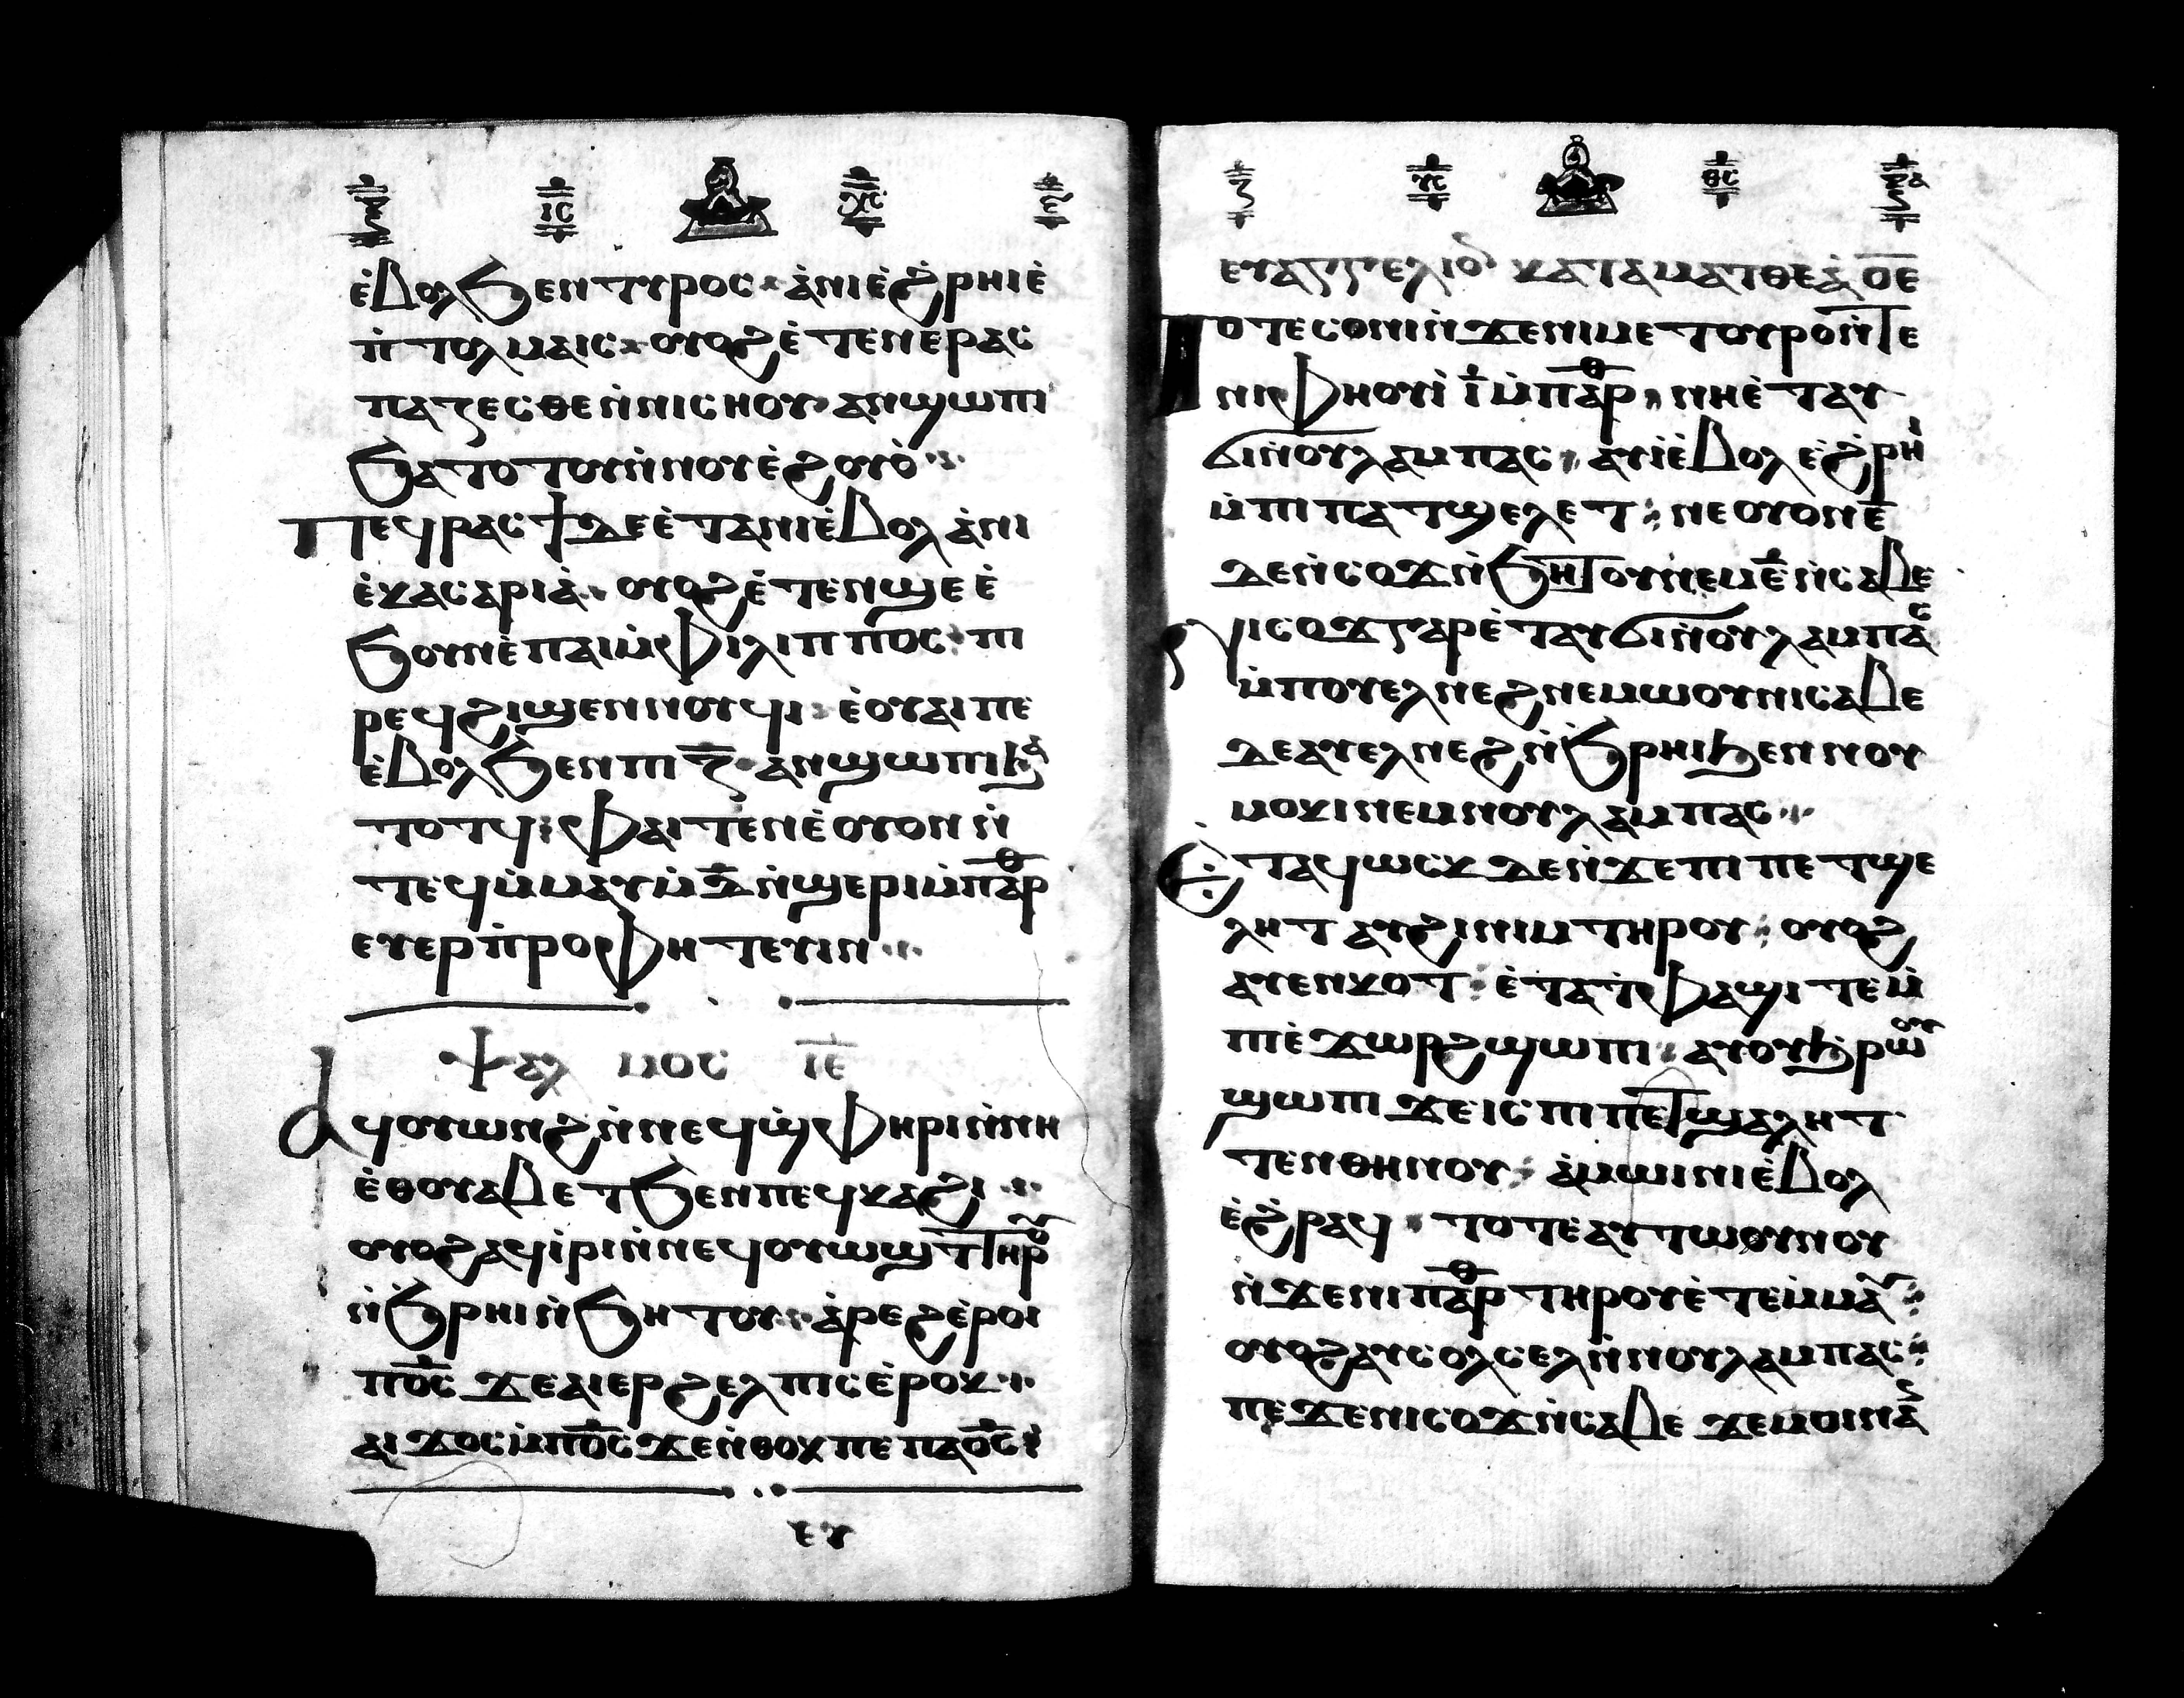 ⲓⲥ ⲭⲥ
ⲉ̀ⲃⲟⲗϧⲉⲛⲧⲩⲣⲟⲥ ⲁ̀ⲛⲓⲉ̀ϩ̀ⲣⲏⲓⲉ̀
ⲡ̀ⲧⲟⲗⲙⲁⲓⲥ ⲟⲩⲟϩⲉ̀ⲧⲉⲛⲉⲣⲁⲥ
ⲡⲁⲍⲉⲥⲑⲉⲛ̀ⲛⲓⲥⲛⲏⲟⲩ ⲁⲛϣⲱⲡⲓ
ϧⲁⲧⲟⲧⲟⲩⲛ̀ⲛⲟⲩⲉ̀ϩⲟⲩⲟ̀
ⲡⲉϥⲣⲁⲥϯⲇⲉⲉ̀ⲧⲁⲛⲓⲉ̀ⲃⲟⲗ ⲁ̀ⲛⲓ
ⲉ̀ⲕⲁⲥⲁⲣⲓⲁ̀ ⲟⲩⲟϩⲉ̀ⲧⲉⲛϣⲉⲉ̀
ϧⲟⲩⲛⲉ̀ⲡⲁⲓⲙ̀ⲫⲓⲗⲓⲡⲡⲟⲥ ⲡⲓ
ⲣⲉϥϩⲓϣⲉⲛⲛⲟⲩϥⲓ ⲉ̀ⲟⲩⲁⲓⲡⲉ
ⲉ̀ⲃⲟⲗϧⲉⲛⲡⲓⲍ̅ ⲁⲛϣⲱⲡⲓϧⲁ
ⲧⲟⲧϥ ⲫⲁⲓⲧⲉⲛⲉ̀ⲟⲩⲟⲛⲛ̀
ⲧⲉϥⲙ̀ⲙⲁⲩⲙ̀ⲇ̅ⲛ̀ϣⲉⲣⲓⲙ̀ⲡⲁⲣⲑ
ⲉⲩⲉⲣⲡ̀ⲣⲟⲫⲏⲧⲉⲩⲓⲛ
ⲯⲁⲗⲙⲟⲥ ⲓ̅ⲉ̅
ⲁϥⲟⲩⲱⲛϩⲛ̀ⲛⲉϥϣ̀ⲫⲏⲣⲓⲛ̀ⲛⲏ
ⲉ̀ⲑⲟⲩⲁⲃⲉⲧϧⲉⲛⲡⲉϥⲕⲁϩⲓ
ⲟⲩⲟϩⲁϥⲓ̀ⲣⲓⲛ̀ⲛⲉϥⲟⲩⲱϣⲧⲏⲣⲟⲩ
ⲛ̀ϧ̀ⲣⲏⲓⲛ̀ϧⲏⲧⲟⲩ ⲁ̀ⲣⲉϩⲉ̀ⲣⲟⲓ
ⲡⲟ̅ⲥ̅ ϫⲉⲁⲓⲉⲣϩⲉⲗⲡⲓⲥⲉ̀ⲣⲟⲕ
ⲁⲓϫⲟⲥⲙ̀ⲡⲟ̅ⲥ̅ϫⲉⲛ̀ⲑⲟⲕⲡⲉⲡⲁⲟ̅ⲥ̅
ⲉⲩ
ⲍ ⲩⲥ ⲑⲥ
ⲉⲩⲁⲅⲅⲉⲗⲓⲟⲛ ⲕⲁⲧⲁⲙⲁⲧⲑⲉⲁ̀ⲟ̅ⲉ̅
ⲧⲟⲧⲉⲥⲟⲛⲓⲛ̀ϫⲉⲛⲓⲙⲉⲧⲟⲩⲣⲟⲛ̀ⲧⲉ
ⲛⲓⲫⲏⲟⲩⲓ̀ ⲓ̅ⲙ̀ⲡⲁⲣⲑ ⲛⲏⲉ̀ⲧⲁⲩ
ϭⲓⲛⲟⲩⲗⲁⲙⲡⲁⲥ ⲁⲩⲓ̀ⲉ̀ⲃⲟⲗ ⲉ̀ϩ̀ⲣⲏⲓ
ⲙ̀ⲡⲓⲡⲁⲧϣⲉⲗⲉⲧ ⲛⲉⲟⲩⲟⲛⲉ̅
ⲇⲉⲛ̀ⲥⲟϫⲛ̀ϧⲏⲧⲟⲩⲛⲉⲙⲉ̅ⲛ̀ⲥⲁⲃⲉ
ⲛⲓⲥⲟϫⲅⲁⲣⲉ̀ⲧⲁⲩϭⲓⲛ̀ⲟⲩⲗⲁⲙⲡⲁⲥ
ⲙ̀ⲡⲟⲩⲉⲗⲛⲉϩⲛⲉⲙⲱⲟⲩⲛⲓⲥⲁⲃⲉ
ⲇⲉⲁⲩⲉⲗⲛⲉϩⲛ̀ϧ̀ⲣⲏⲓϧⲉⲛⲛⲟⲩ
ⲙⲟⲕⲓⲛⲉⲙⲛⲟⲩⲗⲁⲙⲡⲁⲥ
ⲉ̀ⲧⲁϥⲱⲥⲕⲇⲉⲛ̀ϫⲉⲡⲓⲡⲉⲧϣⲉ
ⲗⲏⲧ ⲁⲩϩⲓⲛⲓⲙⲧⲏⲣⲟⲩ ⲟⲩⲟϩ
ⲁⲩⲉⲛⲕⲟⲧ ⲉ̀ⲧⲁⲧ̀ⲫⲁϣⲓⲧⲉⲙ̀
ⲡⲓⲉ̀ϫⲱⲣϩϣⲱⲡⲓ ⲁⲩⲟⲩϧⲣⲱⲟⲩ
ϣⲱⲡⲓ ϫⲉⲓⲥⲡⲓⲡⲉⲧϣⲁⲗⲏⲧ
ⲧⲉⲛⲑⲏⲛⲟⲩ ⲁ̀ⲙⲱⲓⲛⲓⲉ̀ⲃⲟⲗ
ⲉ̀ϩ̀ⲣⲁϥ ⲧⲟⲧⲉⲁⲩⲧⲱⲟⲩⲛⲟⲩ
ⲛ̀ϫⲉⲛⲓⲡⲁⲣⲑ ⲧⲏⲣⲟⲩⲉ̀ⲧⲉⲙ̀ⲙⲁⲩ
ⲟⲩⲟϩⲁⲩⲥⲟⲗⲥⲉⲗⲛ̀ⲛⲟⲩⲗⲁⲙⲡⲁⲥ
ⲡⲉϫⲉⲛⲓⲥⲟϫⲛ̀ⲥⲁⲃⲉ ϫⲉⲙⲟⲓⲛⲁⲛ